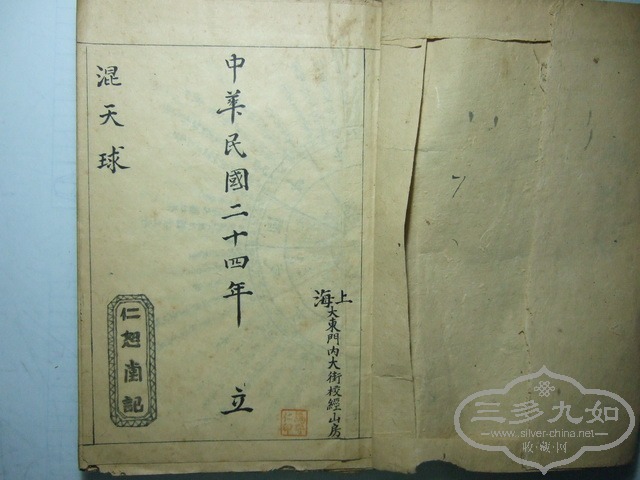 上海大東門內大街校經山房
中華民國二十四年 立
混天球
仁恕南記
三多九如
www.silver-china.net
收·藏·网